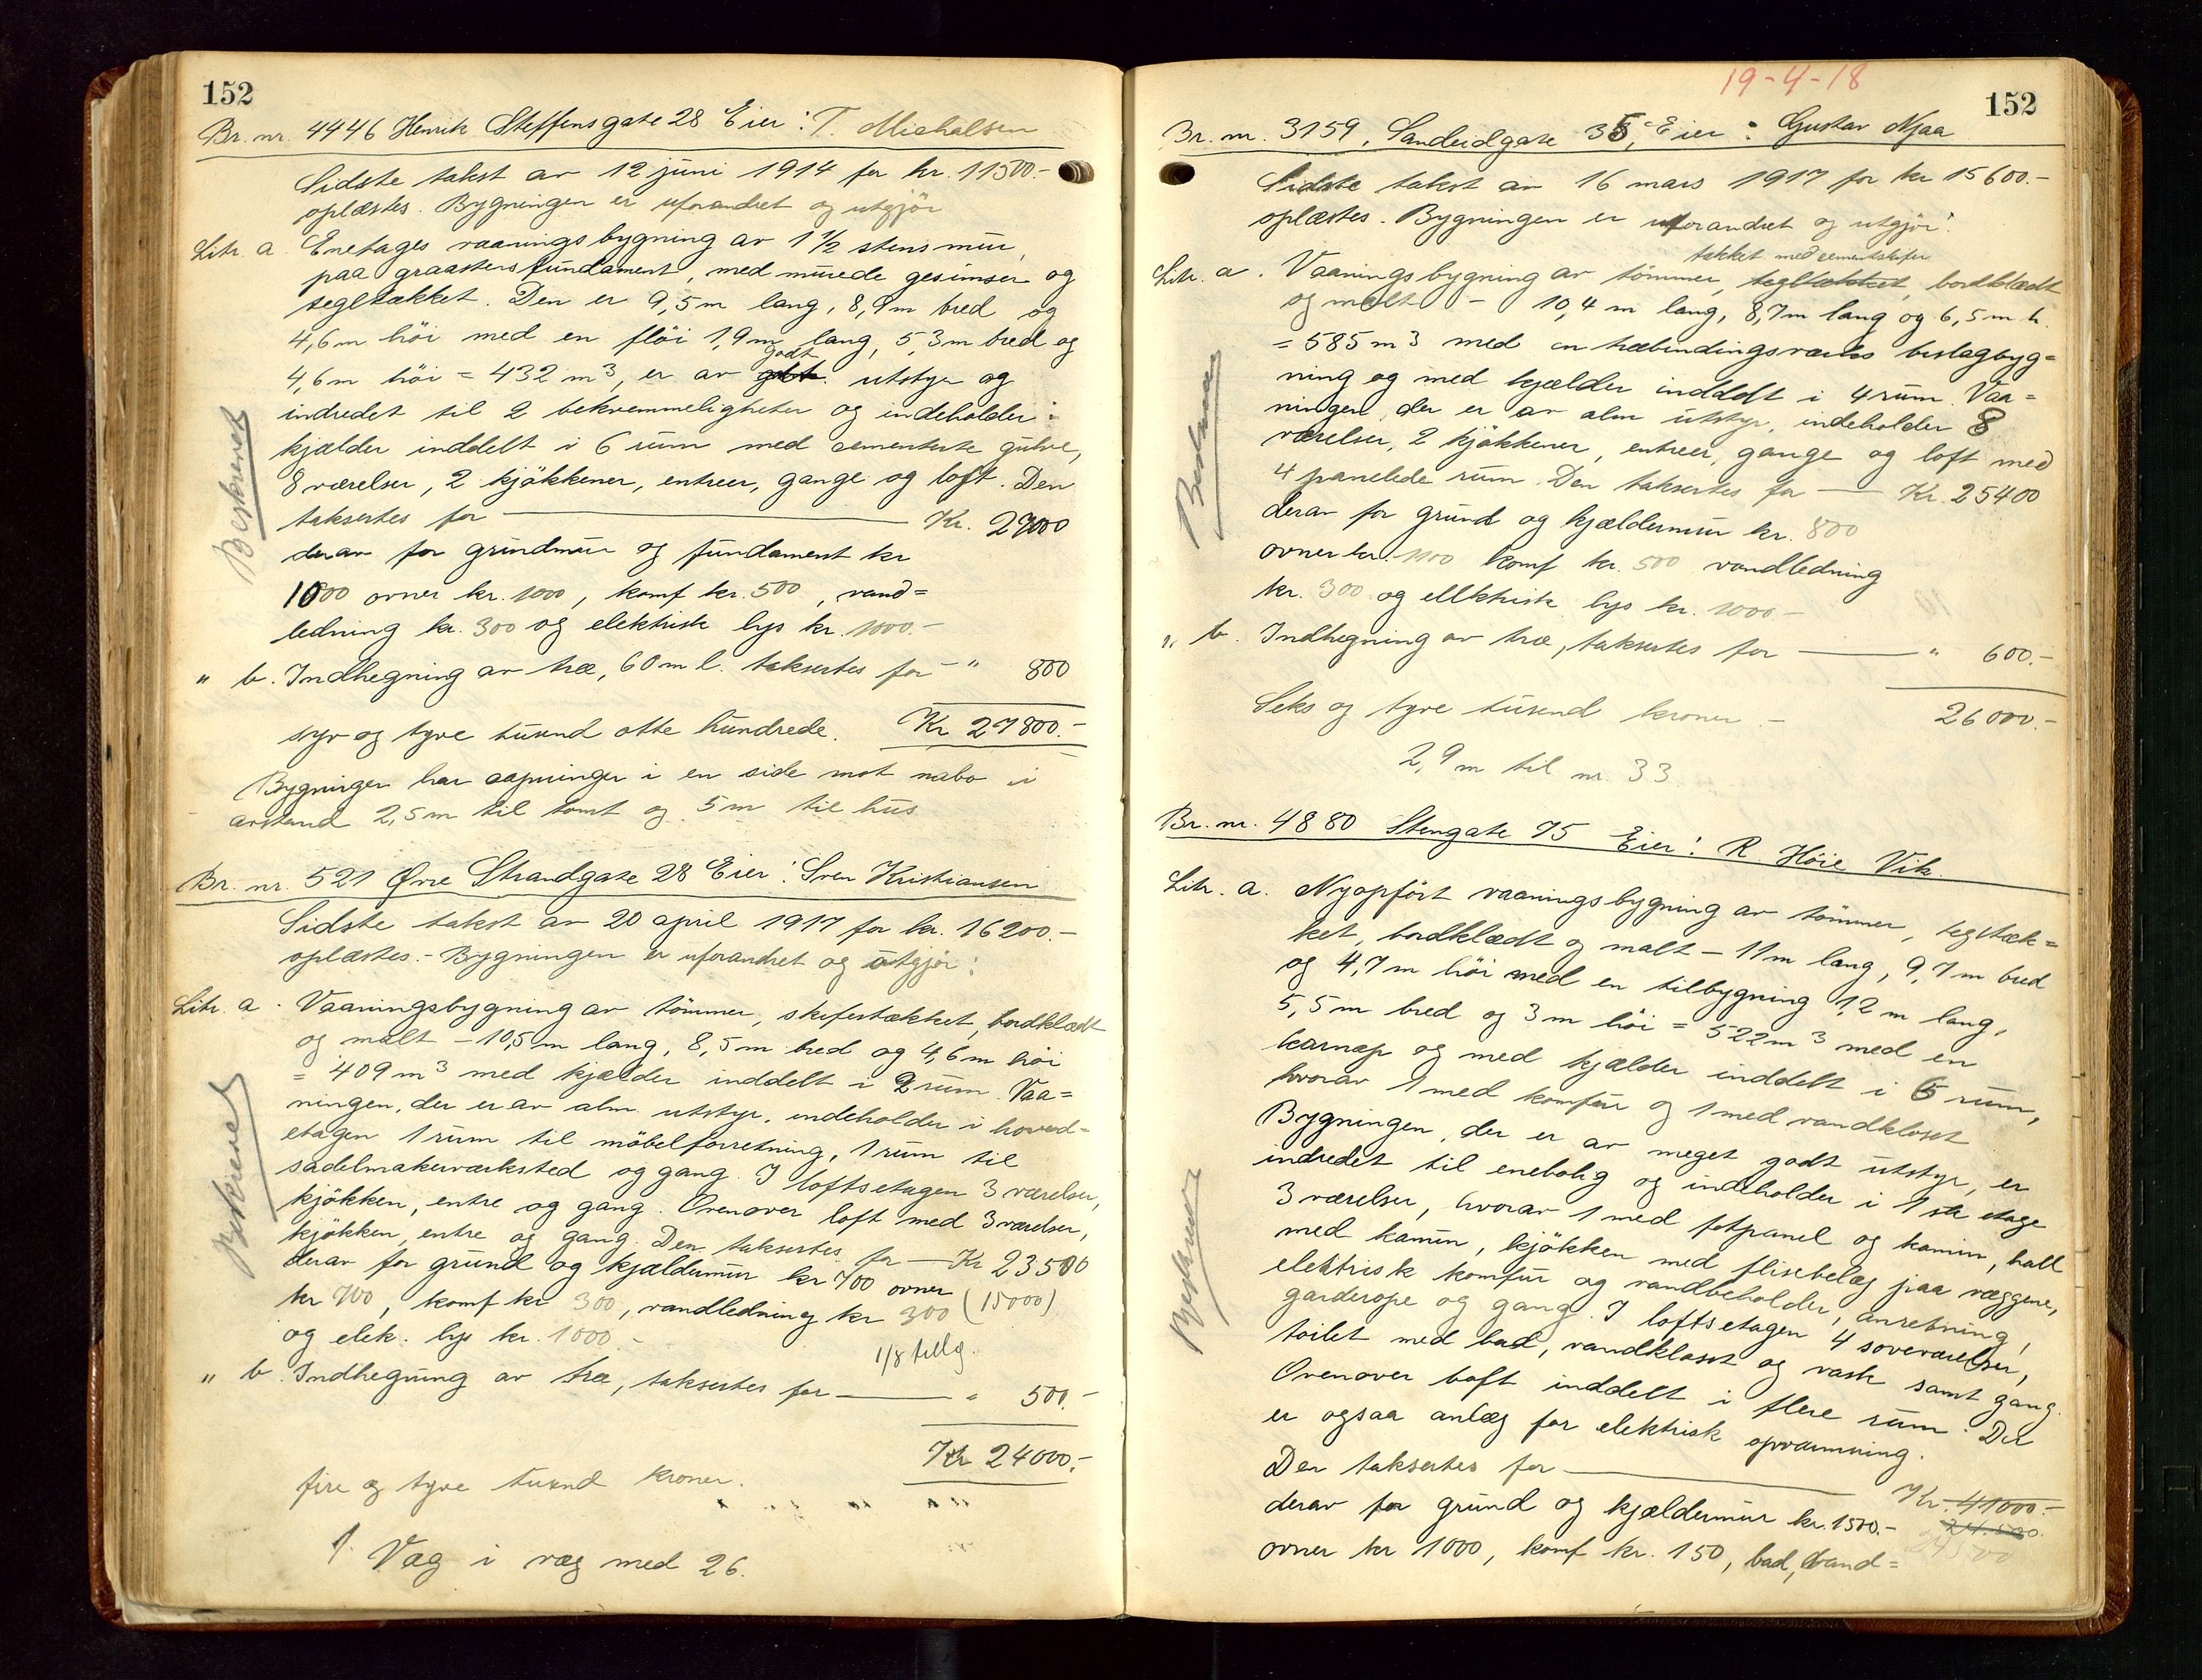 152
Br. nr. 4446 Henrik Steffensgate 28 Eier: T. Michalsen
Sidste takst av 12 juni 1914 for kr. 11500.-
oplæstes. Bygningen er uforandret og utgjör
Litr. a. Enetages vaaningsbygning av 1 1/2 stens mur,
paa graastensfundament, med murede gesimser og
tegltækket. Den er 9,5 m lang, 8,9 m bred og
4,6 m höi med en flöi 1,9 m lang, 5,3 m bred og
4,6 m höi = 432 m3, er av godt utstyr og
indredet til 2 bekvemmeligheter og indeholder:
kjælder inddelt i 6 rum med cementerte gulve,
8 værelser, 2 kjökkener, entreer, gange og loft. Den
taksertes for — Kr. 27000
derav for grundmur og fundament kr
1000 ovner kr. 1000, komf kr. 500, vand=
ledning kr. 300 og elektrisk lys kr. 1000.-
" b. Indhegning av træ, 60 m l. taksertes for - " 800
syv og tyve tusend otte hundrede. Kr 27800.-
Bygningen har aapninger i en side mot nabo i
avstand 2,5 m til tomt og 5 m til hus
Beskrevet
Br. nr. 521 Øvre Strandgate 28 Eier: Sven Kristiansen
Sidste takst av 20 april 1917 for kr. 16200.-
oplæstes.- Bygningen er uforandret og utgjör:
Litr. a. Vaaningsbygning av tömmer, skifertækket, bordklædt
og malt - 10,5 m lang, 8,5 m bred og 4,6 m höi
= 409 m3 med kjælder inddelt i 2 rum. Vaa=
ningen, der er av alm utstyr, indeholder i hoved-
etagen 1 rum til möbelforretning, 1 rum til
sadelmakerverksted og gang. I loftsetagen 3 værelser,
kjökken, entre og gang. Ovenover loft med 3 værelser,
kjökken, entre og gang. Den taksertes for — Kr 23500
derav for grund og kjældermur kr 700 ovner
kr 700, komf kr 300, vandledning kr 300 (15000)
og elek. lys kr. 1000.-
1/8 tillæg.
" b. Indhegning av træ, taksertes for — " 500.-
Kr 24000.-
fire og tyve tusend kroner.
Væg i væg med 26.
Beskrevet
19-4-18
152
Br. nr. 3159, Sandeidgate 35, Eier: Gustav Njaa
Sidste takst av 16 mars 1917 for kr 15600.-
oplæstes. Bygningen er uforandret og utgjör:
takket med cementskifer
Litr. a. Vaaningsbygning av tömmer, tegltækket, bordklædt
og malt - 10,4 m lang, 8,7 m lang og 6,5 m h.
= 585 m3 med en træbindingsverks beslagbyg=
ning og med kjælder inddelt i 4 rum. Vaa=
ningen, der er av alm utstyr, indeholder 8
værelser, 2 kjökkener, entreer, gange og loft med
4 panelede rum. Den taksertes for — Kr. 25400
derav for grund og kjældermur kr. 800
ovner kr. 1100 komf kr. 500 vandledning
kr. 300 og ellktrisk lys kr. 1000.-
" b. Indhegning av træ, taksertes for — " 600.-
Seks og tyve tusend kroner.- 26000.-
2,9 m til nr. 33.
Beskrevet
Br. nr. 4880 Stengate 75 Eier: R. Höie Vik.
Litr. a. Nyopfört vaaningsbygning av tömmer, tegltæk=
ket, bordklædt og malt - 11 m lang, 9,7 m bred
og 4,7 m höi med en tilbygning 1,2 m lang,
5,5 m bred og 3 m höi = 522 m3 med en
karnap og med kjælder inddelt i 6 rum,
hvorav 1 med komfur og 1 med vandkloset
Bygningen, der er av meget godt utstyr, er
indredet til enebolig og indeholder i 1ste etage
3 værelser, hvorav 1 med fotpanel og kamin, hall
med kamin, kjökken med flisebelæg paa væggene,
elektrisk komfur og vandbeholder, anretning,
garderope og gang. I loftsetagen 4 soveværelser,
toilet med bad, vandklosæt og vask samt gang.
Ovenover loft inddelt i flere rum. Der
er ogsaa anlæg for elektrisk opvarmning.
Den taksertes for — Kr. 41000.-
derav for grund og kjældermur kr. 1500.-
ovner kr 1000, komf kr. 150, bad, vand=
Beskrevet